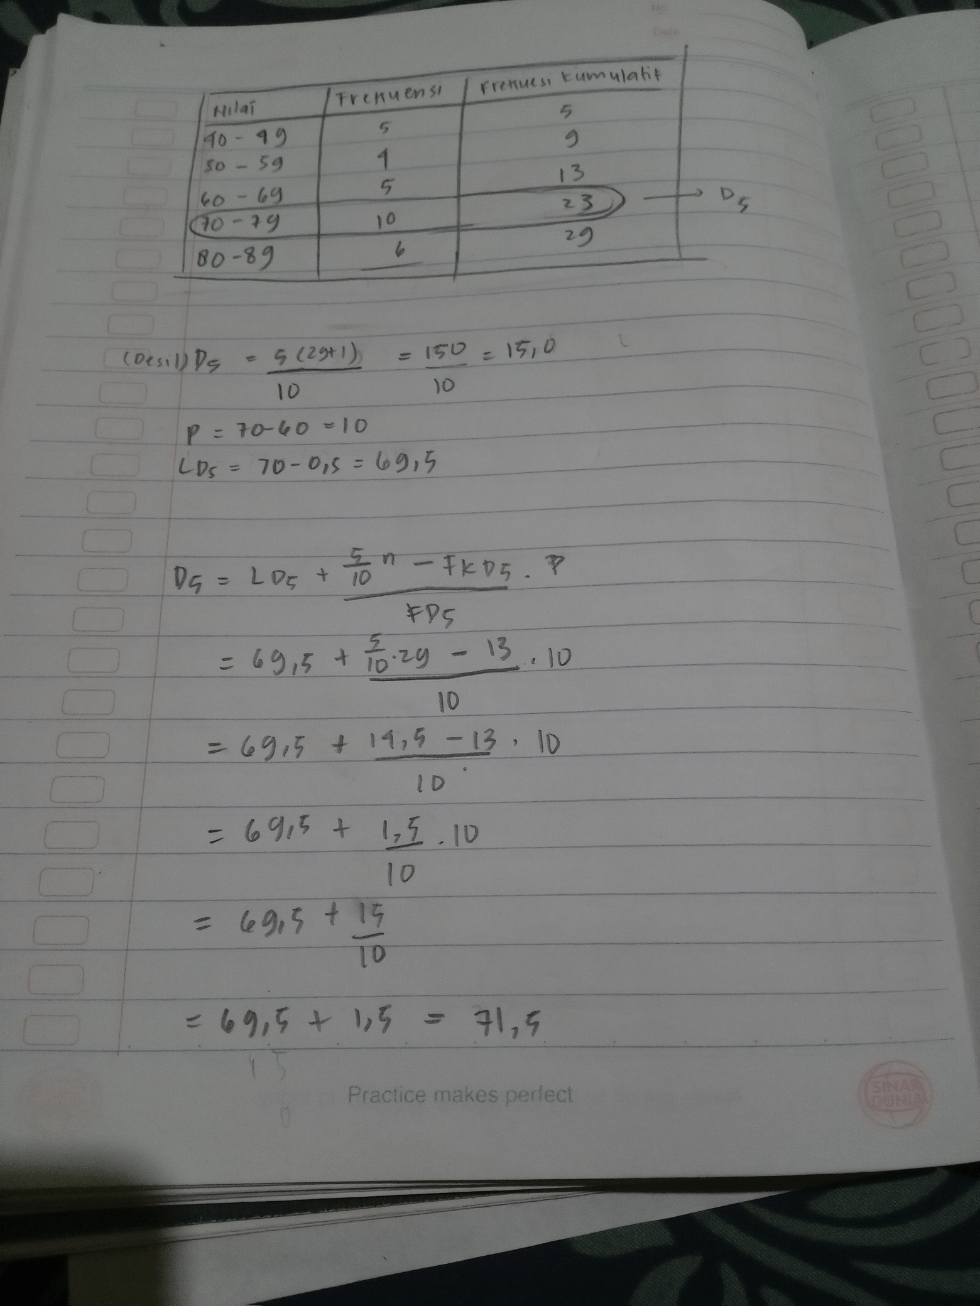 No
Date
Nilai Frekuensi Frekuesi kumulatif
40 - 49 5 5
50 - 59 4 9
60 - 69 5 13
70 - 79 10 23 → D5
80 - 89 6 29
(Desil) D5 = 5 (29+1) / 10 = 150 / 10 = 15,0
P = 70-60 = 10
LD5 = 70 - 0,5 = 69,5
D5 = LD5 + 5/10 n - FKD5 / FD5 . P
= 69,5 + 5/10 . 29 - 13 / 10 . 10
= 69,5 + 14,5 - 13 / 10 . 10
= 69,5 + 1,5 / 10 . 10
= 69,5 + 15 / 10
= 69,5 + 1,5 = 71,5
Practice makes perfect
SINAR DUNIA